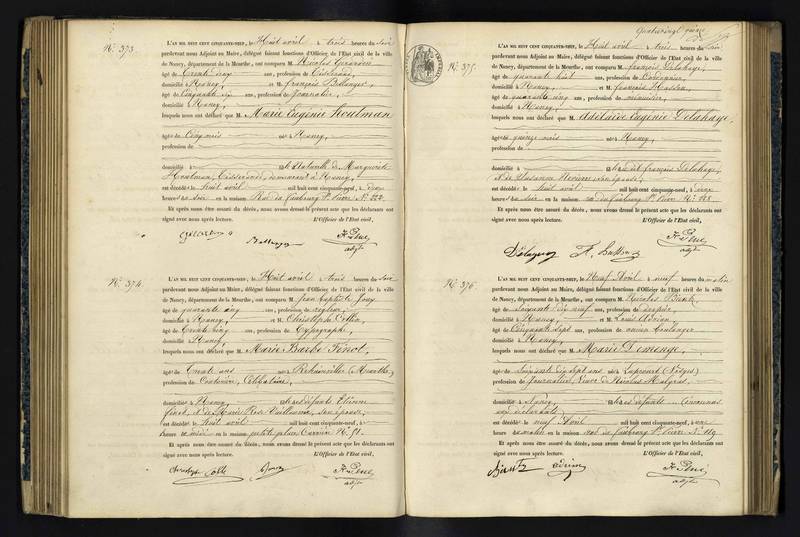 N.º 373.
L'AN MIL HUIT CENT CINQUANTE-NEUF, le Huit avril à trois heures du soir
pardevant nous Adjoint au Maire, délégué faisant fonctions d'Officier de l'Etat civil de la ville
de Nancy, département de la Meurthe, ont comparu M. Nicolas
âgé de Trente ans, profession de
domicilié à Nancy, et M. François
âgé de Cinquante ans, profession de Journalier,
domicilié à Nancy,
lesquels nous ont déclaré que M. Marie Eugénie Houtman
âgée de Cinq mois né à Nancy,
profession de
domicilié à fille naturelle de Marguerite
Houtman, Tisserande, demeurant à Nancy,
est décédée le huit avril mil huit cent cinquante-neuf, à
heures du soir en la maison Rue du faubourg St. Pierre N.º
Et après nous être assuré du décès, nous avons dressé le présent acte que les déclarants ont
signé avec nous après lecture. L'Officier de l'Etat civil,
adj.t
N.º 374.
L'AN MIL HUIT CENT CINQUANTE-NEUF, le Huit avril à trois heures du soir
pardevant nous Adjoint au Maire, délégué faisant fonctions d'Officier de l'Etat civil de la ville
de Nancy, département de la Meurthe, ont comparu M. Jean Baptiste Jouy
âgé de quarante cinq ans, profession de
domicilié à Nancy, et M. Christophe Collin
âgé de Trente cinq ans, profession de Typographe,
domicilié à Nancy,
lesquels nous ont déclaré que M. Marie Barbe Finot,
âgée de Trente ans née à (Meurthe)
profession de Couturière, Célibataire,
domiciliée à Nancy, fille des défunts Etienne
Finot, et de Marie Rose Vuillaume, son épouse,
est décédée le huit avril mil huit cent cinquante-neuf, à
heure de midi en la maison petite place Carrière N.º 51.
Et après nous être assuré du décès, nous avons dressé le présent acte que les déclarants ont
signé avec nous après lecture. L'Officier de l'Etat civil,
Jouy
adj.t
Quatrevingt quinze
N.º 375.
L'AN MIL HUIT CENT CINQUANTE-NEUF, le Huit avril à trois heures du soir
pardevant nous Adjoint au Maire, délégué faisant fonctions d'Officier de l'Etat civil de la ville
de Nancy, département de la Meurthe, ont comparu M. François Delahaye,
âgé de quarante huit ans, profession de Cordonnier,
domicilié à Nancy, et M. François
âgé de quarante cinq ans, profession de menuisier,
domicilié à Nancy,
lesquels nous ont déclaré que M. Adélaïde Eugénie Delahaye,
âgée de quinze mois née à Nancy,
profession de
domicilié à fille dudit François Delahaye,
et de Suzanne son épouse,
est décédée le huit avril mil huit cent cinquante-neuf, à
heures du soir en la maison rue du faubourg St. Pierre N.º
Et après nous être assuré du décès, nous avons dressé le présent acte que les déclarants ont
signé avec nous après lecture. L'Officier de l'Etat civil,
adj.t
N.º 376
L'AN MIL HUIT CENT CINQUANTE-NEUF, le Neuf Avril à neuf heures du matin
pardevant nous Adjoint au Maire, délégué faisant fonctions d'Officier de l'Etat civil de la ville
de Nancy, département de la Meurthe, ont comparu M. Nicolas
âgé de Soixante dix neuf ans, profession de
domicilié à Nancy, et M. Louis Adrian,
âgé de Cinquante sept ans, profession de ancien boulanger
domicilié à Nancy,
lesquels nous ont déclaré que M. Marie Demenge,
âgée de Soixante dix sept ans née à (Vosges)
profession de Journalière, Veuve de Nicolas Malgras,
domiciliée à Nancy, fille des défunts ... (inconnus
aux déclarants)
est décédée le neuf Avril mil huit cent cinquante-neuf, à une
heure du matin en la maison rue du faubourg St. Pierre N.º 119.
Et après nous être assuré du décès, nous avons dressé le présent acte que les déclarants ont
signé avec nous après lecture. L'Officier de l'Etat civil,
adj.t